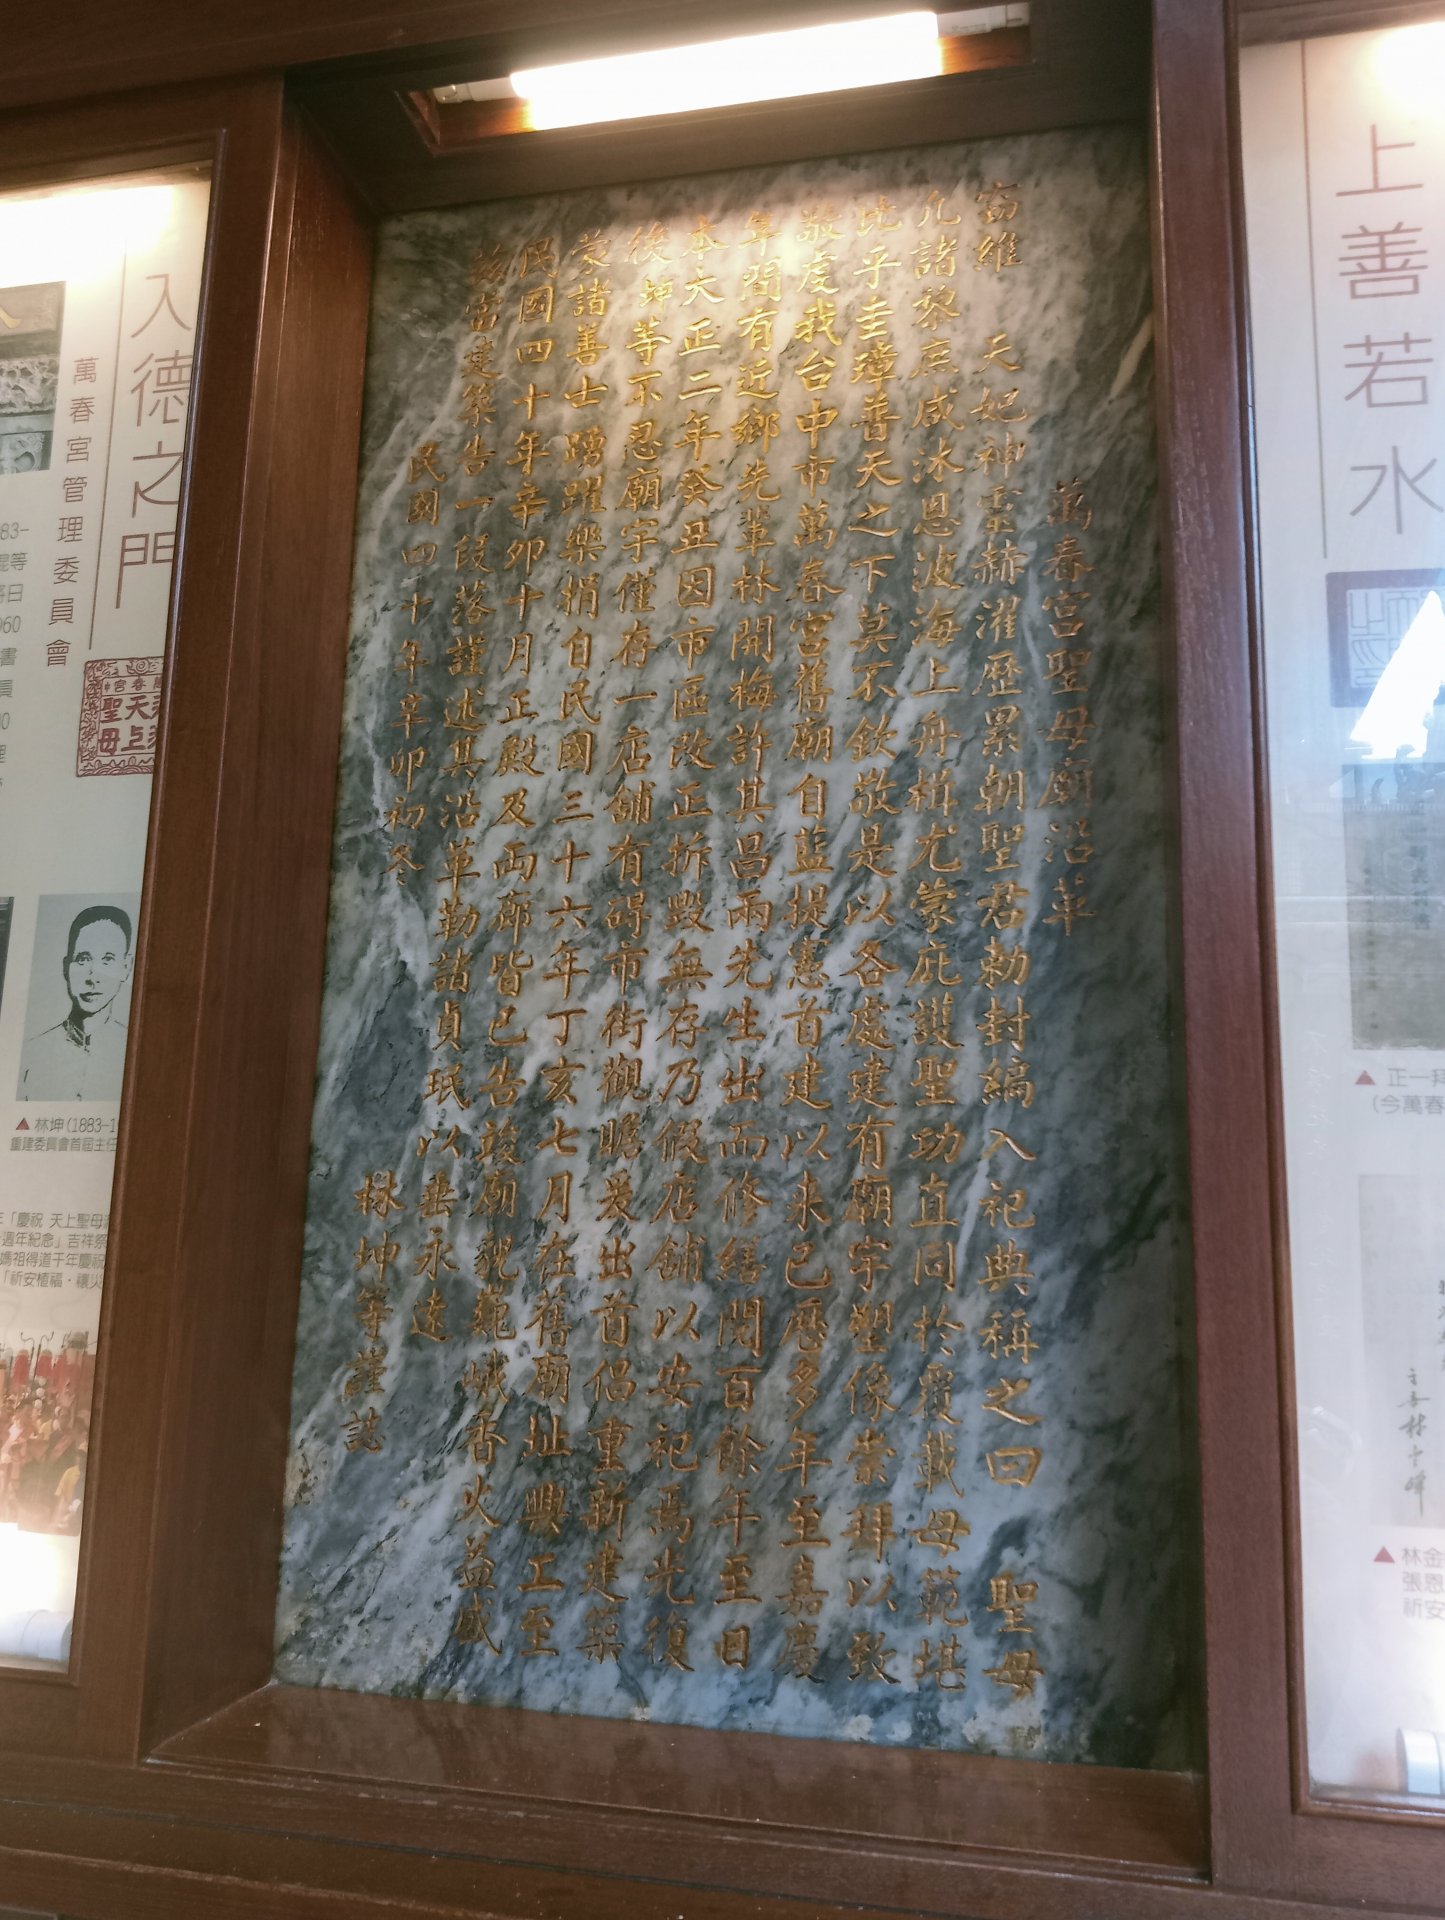 上善若水
▲ 正一
(今萬春
▲ 林金
張恩
祈安
萬春宮聖母廟沿革
窃維 天妃神霊赫濯歷累朝聖君勅封編入祀典稱之曰 聖母
凡諸黎庶咸沐恩波海上舟楫尤蒙庇護聖功直同於覆載母範堪
比乎圭璋普天之下莫不欽敬是以各處建有廟宇塑像崇拜以致
敬虔我台中市萬春宮舊廟自藍提憲首建以来已歷多年至嘉慶
年間有近鄉先輩林開梅許其昌兩先生出而修繕閱百餘年至日
本大正二年癸丑因市區改正拆毀無存乃假店舖以安祀焉光復
後坤等不忍廟宇僅存一店舖有碍市街觀瞻爰出首倡重新建築
蒙諸善士踴躍樂捐自民國三十六年丁亥七月在舊廟址興工至
民國四十年辛卯十月正殿及両廊皆已告竣廟貌巍峨香火益盛
茲當建築告一段落謹述其沿革勒諸貞珉以垂永遠
民國四十年辛卯初冬
林坤等謹誌
入德之門
萬春宮管理委員會
▲ 林坤(1883-1
重建委員會首屆主任
「慶祝 天上聖母
週年紀念」吉祥祭
媽祖得道千年慶祝
「祈安植福·禳火